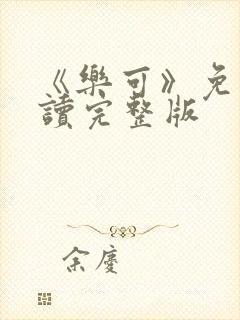 《樂可》免
讀完整版
余慶